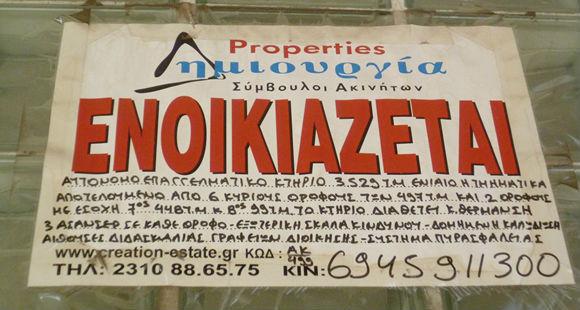 Properties
Δημιουργία
Σύμβουλοι Ακινήτων
ΕΝΟΙΚΙΑΖΕΤΑΙ
ΑΥΤΟΝΟΜΟ ΕΠΑΓΓΕΛΜΑΤΙΚΟ ΚΤΗΡΙΟ 3.529 Τ.Μ. ΕΝΙΑΙΟ Η ΤΜΗΜΑΤΙΚΑ
ΑΠΟΤΕΛΟΥΜΕΝΟ ΑΠΟ 6 ΚΥΡΙΟΥΣ ΟΡΟΦΟΥΣ ΤΩΝ 497 Τ.Μ. ΚΑΙ 2 ΟΡΟΦΟΥΣ
ΜΕ ΕΣΟΧΗ 7ος 448 Τ.Μ. Κ 8ος 99 Τ.Μ. ΤΟ ΚΤΗΡΙΟ ΔΙΑΘΕΤΕΙ Κ. ΘΕΡΜΑΝΣΗ
3 ΑΣΑΝΣΕΡ ΣΕ ΚΑΘΕ ΟΡΟΦΟ - ΕΞΩΤΕΡΙΚΗ ΣΚΑΛΑ ΚΙΝΔΥΝΟΥ - ΔΟΜΗΜΕΝΗ ΚΑΛΩΔΙΩΣΗ
ΑΙΘΟΥΣΕΣ ΔΙΔΑΣΚΑΛΙΑΣ, ΓΡΑΦΕΙΩΝ ΔΙΟΙΚΗΣΗΣ - ΣΥΣΤΗΜΑ ΠΥΡΑΣΦΑΛΕΙΑΣ
www.creation-estate.gr ΚΩΔ : ΑΚ 499
ΤΗΛ: 2310 88.65.75 ΚΙΝ: 6945911300